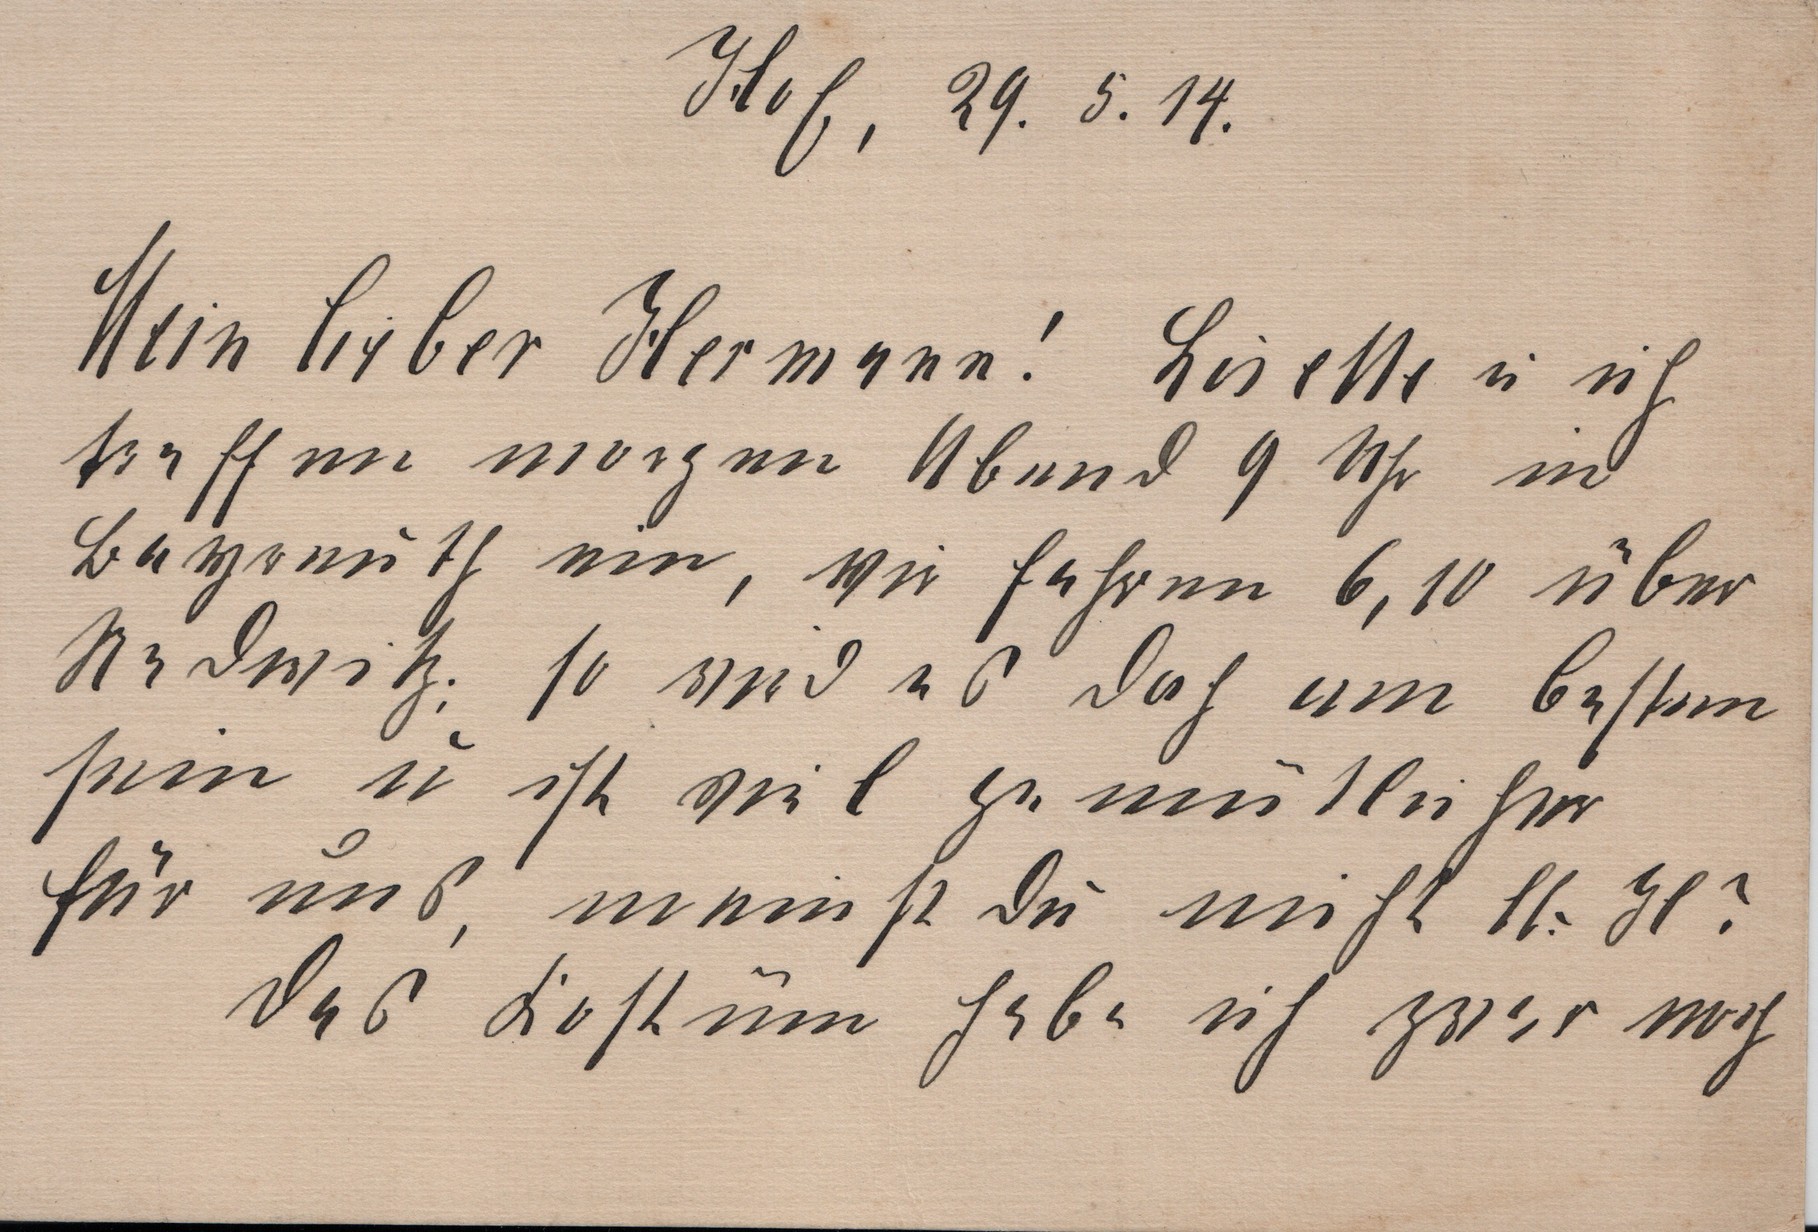 Hof, 29. 5. 14.
Mein lieber Hermann! Lisette u ich
treffen morgen Abend 9 Uhr in
Bayreuth ein, wir fahren 6,10 über
Redwitz; so wird es doch am besten
sein u ist viel gemütlicher
für uns, meinst Du nicht lb. H?
Das Kostüm habe ich zwar noch